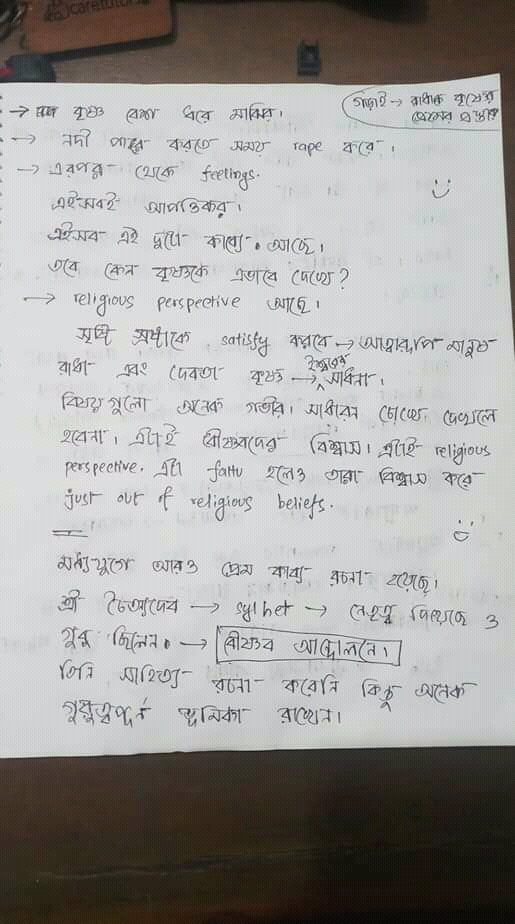 caretutors
গড়াই → রাধাকে কৃষ্ণের
প্রেমের প্রস্তাব
→ কৃষ্ণ বেশ ধরে মাঝির।
→ নদী পার করতে সময় rape করে।
→ এরপর থেকে feelings.
এইসবই আপত্তিকর।
এইসব এই দুটো কাব্যে আছে।
তবে কেন কৃষ্ণকে এভাবে দেখে?
→ religious perspective আছে।
সৃষ্টি স্রষ্টাকে satisfy করবে → আত্মারূপি মানুষ
রাধা এবং দেবতা কৃষ্ণ → সাধনা।
বিষয়গুলো অনেক গভীর। সাধারন চোখে দেখলে
হবেনা। এটাই বৈষ্ণবদের বিশ্বাস। এটাই religious
perspective. এটা faltu হলেও তারা বিশ্বাস করে
just out of religious beliefs.
মধ্যযুগে আরও প্রেম কাব্য রচনা হয়েছে।
শ্রী চৈতন্যদেব → sylhet → নেতৃত্ব দিয়েছে ও
গুরু ছিলেন। → বৈষ্ণব আন্দোলনে।
তিনি সাহিত্য রচনা করেনি কিন্তু অনেক
গুরুত্বপূর্ন ভূমিকা রাখেন।